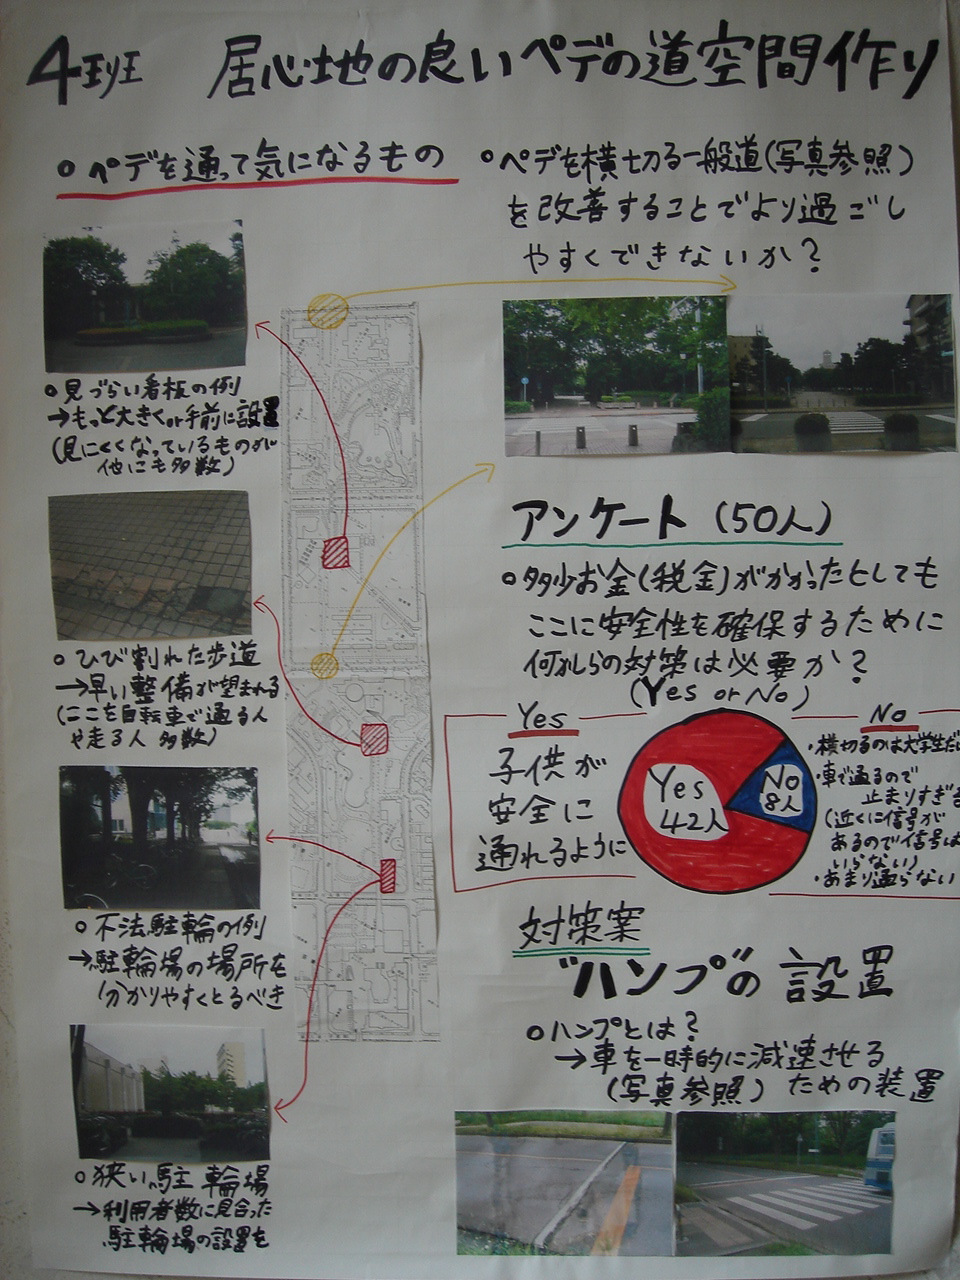 4班 居心地の良いペデの道空間作り
○ペデを通って気になるもの
○見づらい看板の例
→もっと大きくor手前に設置
(見にくくなっているものが
他にも多数)
○ひび割れた歩道
→早い整備が望まれる
(ここを自転車で通る人
や走る人 多数)
○不法駐輪の例
→駐輪場の場所を
分かりやすくとるべき
○狭い駐輪場
→利用者数に見合った
駐輪場の設置を
○ペデを横切る一般道(写真参照)
を改善することでより過ごし
やすくできないか?
アンケート(50人)
○多少お金(税金)がかかったとしても
ここに安全性を確保するために
何かしらの対策は必要か?
(Yes or No)
Yes
子供が
安全に
通れるように
Yes
42人
No
8人
No
・横切るのは大学生だ
・車で通るので
止まりすぎる
(近くに信号が
あるので信号は
いらない)
・あまり通らない
対策案
"ハンプ"の設置
○ハンプとは?
→車を一時的に減速させる
(写真参照) ための装置